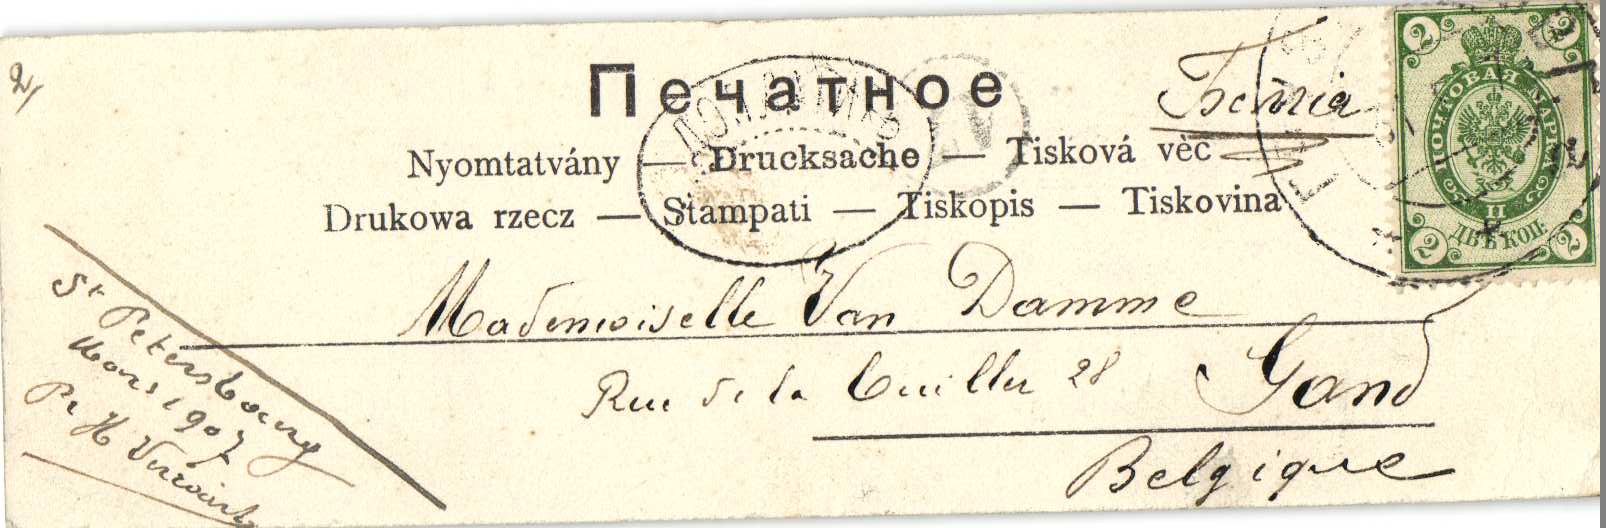 2,
Печатное
Бельгія
Nyomtatvány — Drucksache — Tisková vèc
Drukowa rzecz — Stampati — Tiskopis — Tiskovina
2 2
ПОЧТОВАЯ МАРКА
II
ДВѢ КОП.
2 2
Mademoiselle Van Damme
Rue de la Cuiller 28 Gand
Belgique
St Petersbourg
Mars 1907
Pr H